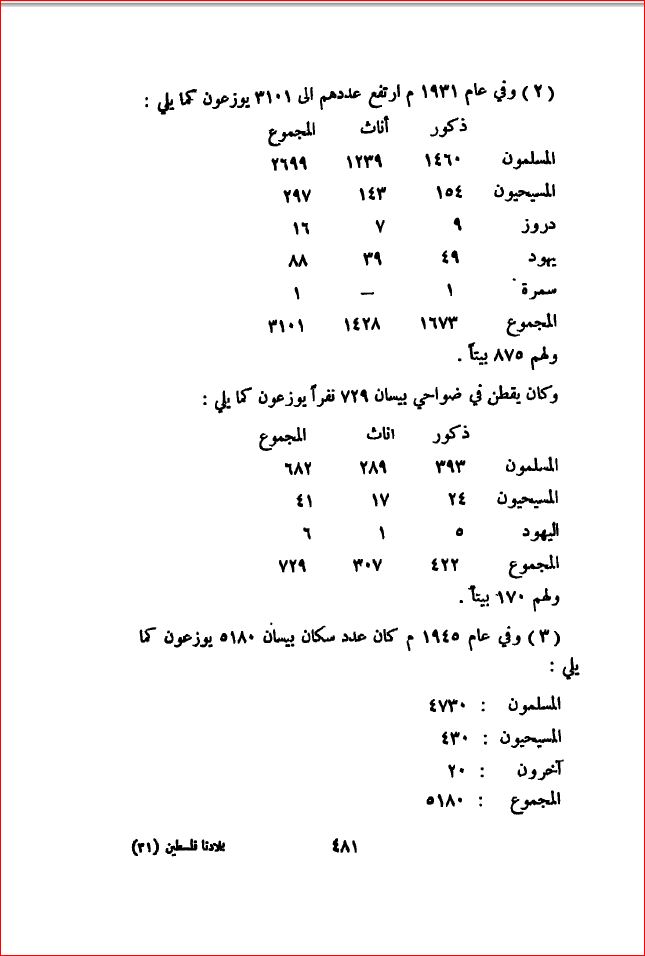 ( ٢ ) وفي عام ١٩٣١ م ارتفع عددهم الى ٣١٠١ يوزعون كما يلي :
ذكور أناث المجموع
المسلمون ١٤٦٠ ١٢٣٩ ٢٦٩٩
المسيحيون ١٥٤ ١٤٣ ٢٩٧
دروز ٩ ٧ ١٦
يهود ٤٩ ٣٩ ٨٨
سمرة ١ — ١
المجموع ١٦٧٣ ١٤٢٨ ٣١٠١
ولهم ٨٧٥ بيتاً .
وكان يقطن في ضواحي بيسان ٧٢٩ نفراً يوزعون كما يلي :
ذكور اناث المجموع
المسلمون ٣٩٣ ٢٨٩ ٦٨٢
المسيحيون ٢٤ ١٧ ٤١
اليهود ٥ ١ ٦
المجموع ٤٢٢ ٣٠٧ ٧٢٩
ولهم ١٧٠ بيتاً .
( ٣ ) وفي عام ١٩٤٥ م كان عدد سكان بيسان ٥١٨٠ يوزعون كما
يلي :
المسلمون : ٤٧٣٠
المسيحيون : ٤٣٠
آخرون : ٢٠
المجموع : ٥١٨٠
٤٨١ بلادنا فلسطين (٣١)